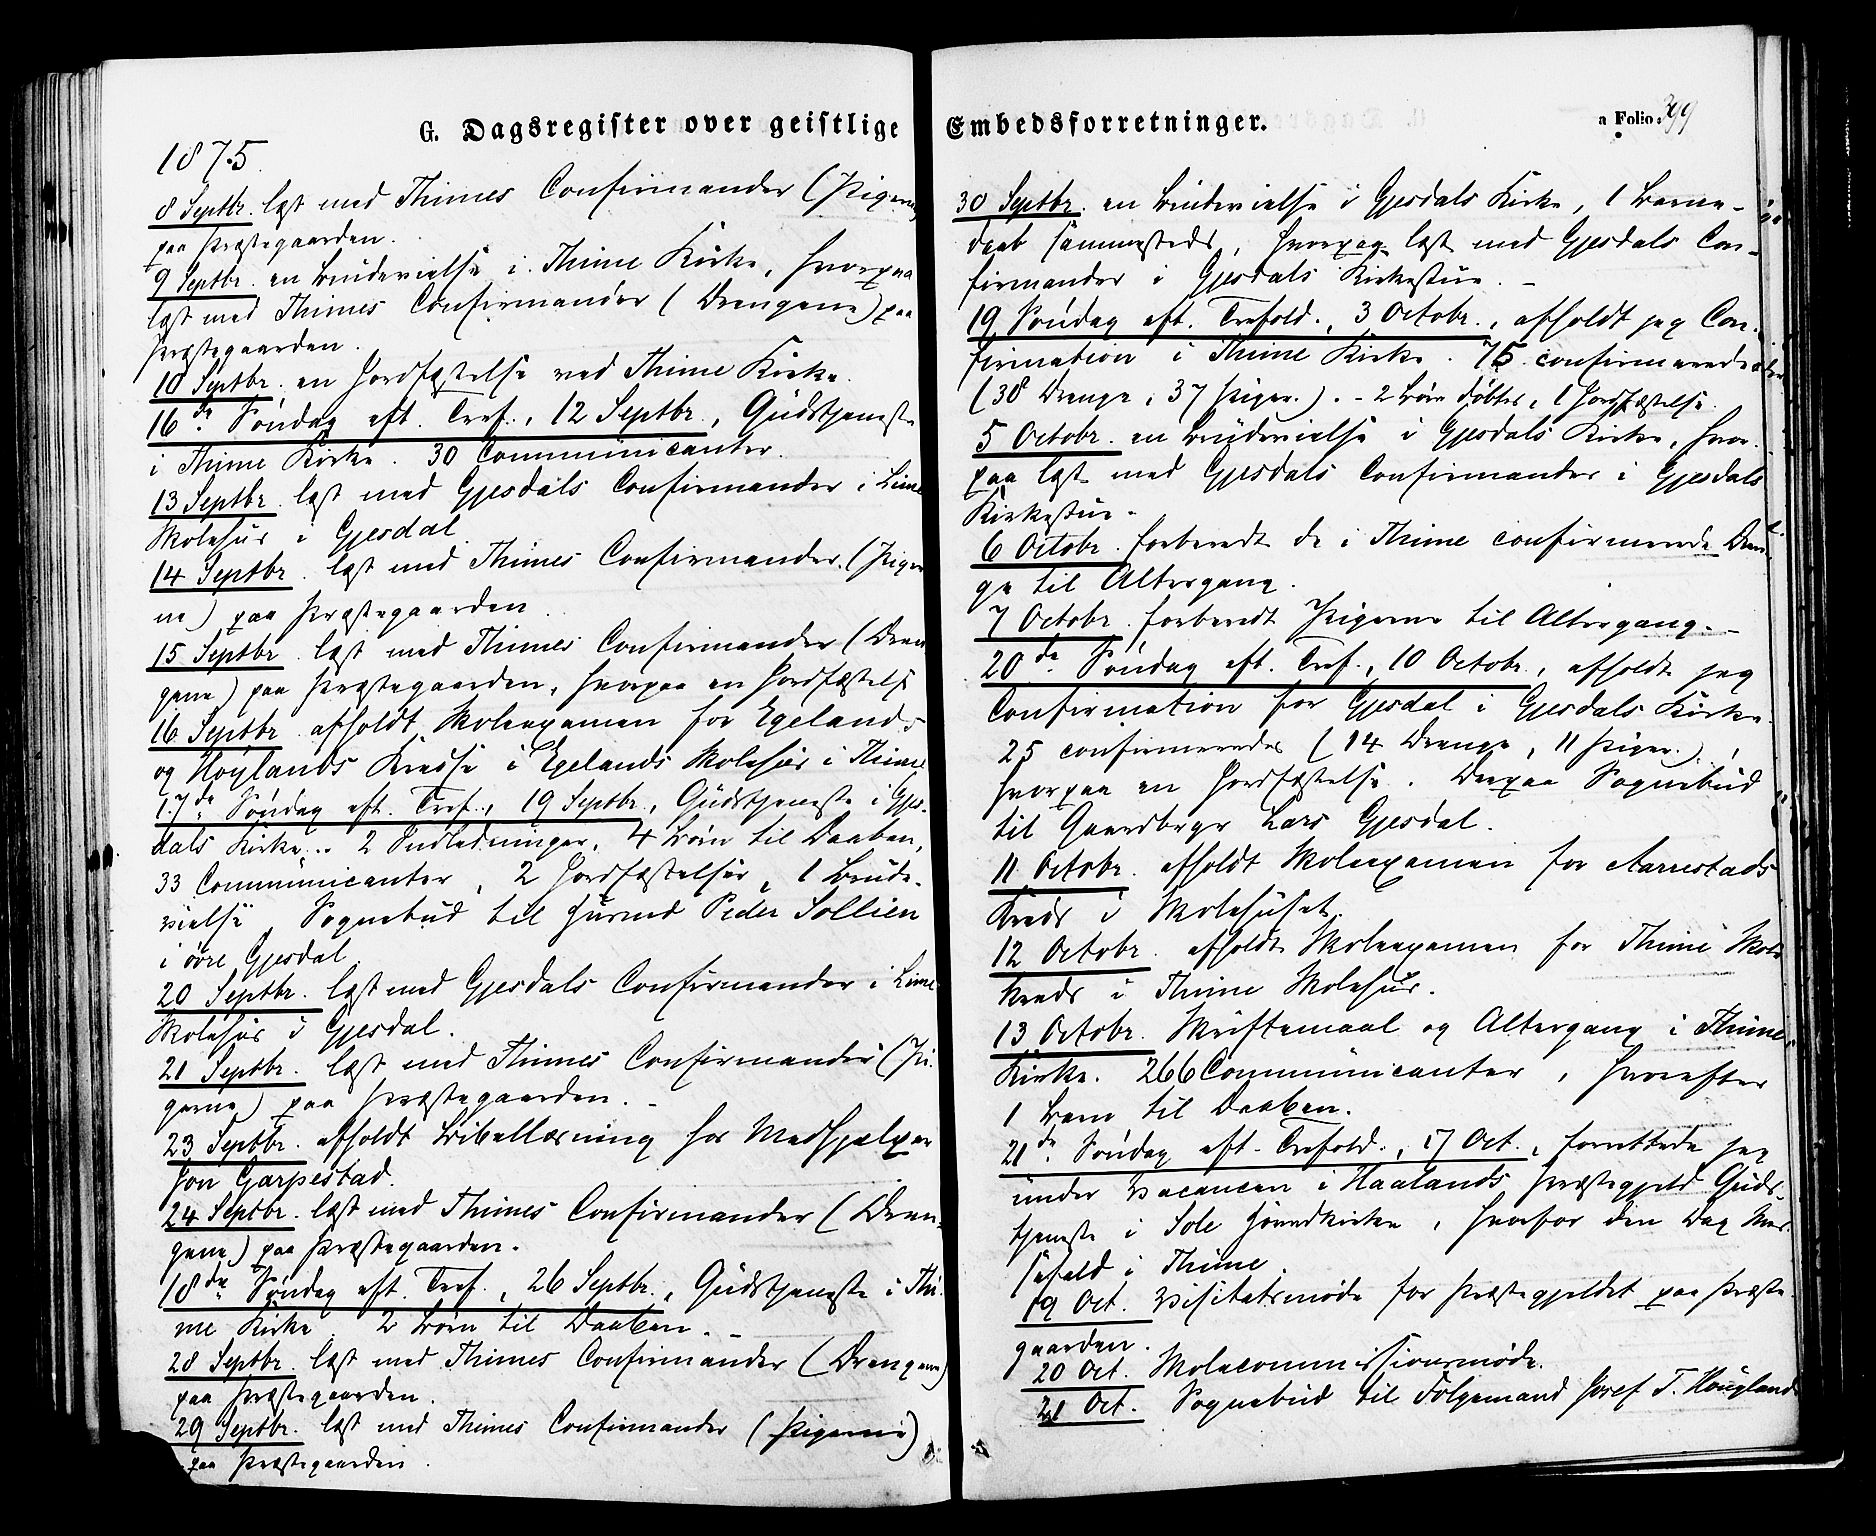 G. Dagsregister over geistlige Embedsforretninger.
a Folio. 399
1875.
8 Septbr. læst med Thimes Confirmander (Pigerne)
paa Præstegaarden.
9 Septbr. en Brudevielse i Thime Kirke, hvorpaa
læst med Thimes Confirmander (Drengene) paa
Præstegaarden.
10 Septbr. en Jordfæstelse ved Thime Kirke.
16de Søndag eft. Tref., 12 Septbr., Gudstjeneste
i Thime Kirke. 30 Communicanter.
13 Septbr. læst med Gjesdals Confirmander i Lime
Skolehus i Gjesdal.
14 Septbr. læst med Thimes Confirmander (Piger-
ne) paa Præstegaarden.
15 Septbr. læst med Thimes Confirmander (Dren-
gene) paa Præstegaarden, hvorpaa en Jordfæstelse
16 Septbr. afholdt Skoleexamen for Egelands
og Høylands Kredse i Egelands Skolehus i Thime
17de Søndag eft. Tref., 19 Septbr., Gudstjeneste i Gjes-
dals Kirke. 2 Indledninger, 4 Børn til Daaben,
33 Communicanter, 2 Jordfæstelser, 1 Brude-
vielse, Sognebud til Husmd Peder Sollien
i øvre Gjesdal.
20 Septbr. læst med Gjesdals Confirmander i Lime
Skolehus i Gjesdal.
21 Septbr. læst med Thimes Confirmander (Pi-
gerne) paa Præstegaarden.
23 Septbr. afholdt Bibellæsning hos Medhjælper
Jon Garpestad.
24 Septbr. læst med Thimes Confirmander (Dren-
gene) paa Præstegaarden.
18de Søndag eft. Tref., 26 Septbr., Gudstjeneste i Thi-
me Kirke. 2 Børn til Daaben.
28 Septbr. læst med Thimes Confirmander (Drengene)
paa Præstegaarden.
29 Septbr. læst med Thimes Confirmander (Pigerne)
paa Præstegaarden.
30 Septbr. en Brudevielse i Gjesdals Kirke, 1 Barne-
daab sammesteds, hvorpaa læst med Gjesdals Con-
firmander i Gjesdals Kirkestue.
19 Søndag eft. Trefold., 3 Octobr., afholdt jeg Con-
firmation i Thime Kirke. 75 confirmeredes
(38 Drenge, 37 Piger.). - 2 Børn døbtes, 1 Jordfæstelse.
5 Octobr. en Brudevielse i Gjesdals Kirke, hvor-
paa læst med Gjesdals Confirmander i Gjesdals
Kirkestue.
6 Octobr. forberedt de i Thime confirmerede Dren-
ge til Altergang.
7 Octobr. forberedt Pigerne til Altergang.
20de Søndag eft. Tref., 10 Octobr., afholdt jeg
Confirmation for Gjesdal i Gjesdals Kirke.
25 confirmeredes (14 Drenge, 11 Piger.),
hvorpaa en Jordfæstelse. Derpaa Sognebud
til Gaardbrgr Lars Gjesdal.
11 Octobr. afholdt Skoleexamen for Aarrestads
Kreds i Skolehuset.
12 Octobr. afholdt Skoleexamen for Thime Skole
kreds i Thime Skolehus.
13 Octobr. Skriftemaal og Altergang i Thime
Kirke. 266 Communicanter, hvorefter
1 Barn til Daaben.
21de Søndag eft. Trefold., 17 Oct., forrettede jeg
under Vacancen i Haalands Præstegjeld Guds-
tjeneste i Sole Hovedkirke, hvorfor den Dag Mes-
sefald i Thime.
19 Oct. Visitatsmøde for Præstegjeldet paa Præste-
gaarden.
20 Oct. Skolecommissionsmøde.
21 Oct. Sognebud til Følgemand Josef T. Høugland